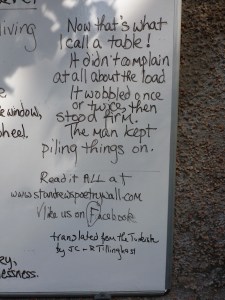 living
Now that's what
I call a table!
It didn't complain
at all about the load
It wobbled once
or twice, then
stood firm.
The man kept
piling things on.
window,
wheel.
Read it ALL at
www.standrewspoetrywall.com
Like us on Facebook
translated from the Turkish
by JC + R Tillinghast
lessness.